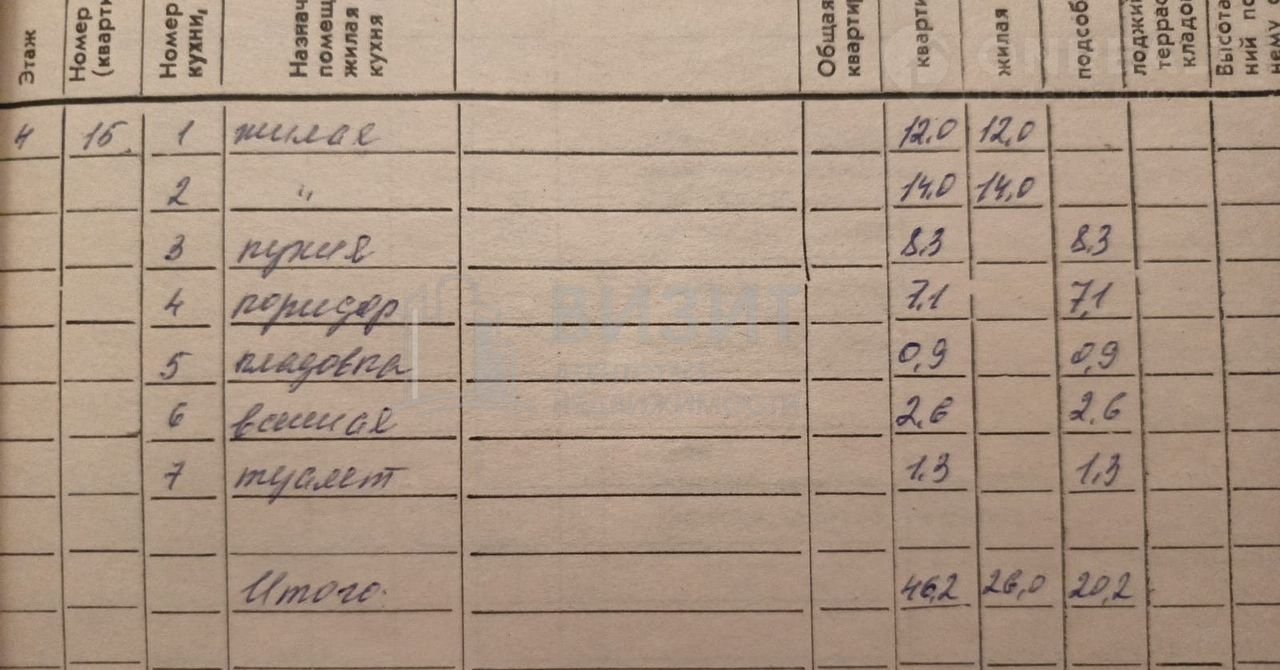 Этаж
Номер
(кварти
Номер
кухни,
Назнач
помещ
жилая
кухня
Общая
квартир
кварти
жилая
подсоб
лоджи
террас
кладо
Высота
ний по
нему о
4 15 1 жилая 12,0 12,0
2 " 14,0 14,0
3 кухня 8,3 8,3
4 коридор 7,1 7,1
5 кладовка 0,9 0,9
6 ванная 2,6 2,6
7 туалет 1,3 1,3
Итого 46,2 26,0 20,2
ВИЗИТ
АГЕНТСТВО
НЕДВИЖИМОСТИ